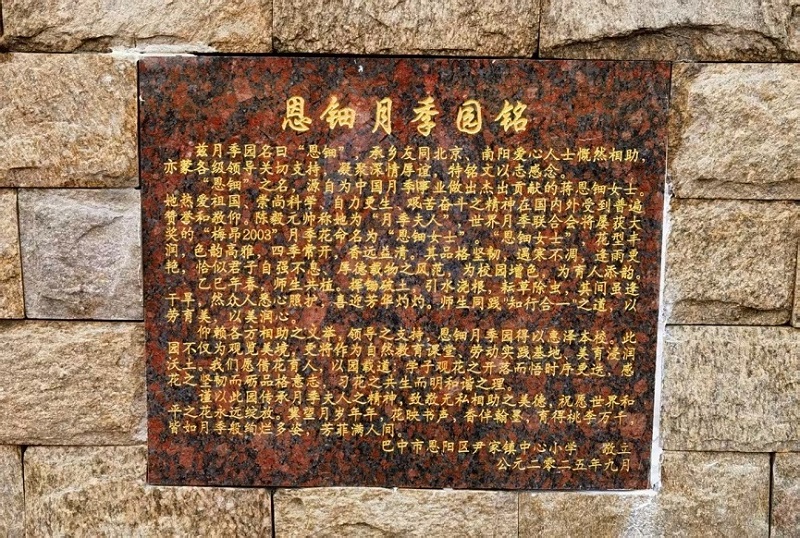 恩钿月季园铭
兹月季园名曰“恩钿”，承乡友同北京、南阳爱心人士慨然相助，
亦蒙各级领导关切支持，凝聚深情厚谊，特铭文以志感念。
“恩钿”之名，源自为中国月季事业做出杰出贡献的蒋恩钿女士。
她热爱祖国、崇尚科学、自力更生、艰苦奋斗之精神在国内外受到普遍
赞誉和敬仰。陈毅元帅称她为“月季夫人”，世界月季联合会将屡获大
奖的“梅昂2003”月季花命名为“恩钿女士”。“恩钿女士”，花型丰
润，色韵高雅，四季常开，香远益清。其品格坚韧，遇寒不凋，逢雨更
艳，恰似君子自强不息、厚德载物之风范，为校园增色，为育人添韵。
乙巳年春，师生共植，挥锄破土，引水浇根，耘草除虫，其间虽逢
干旱，然众人悉心照护，喜迎芳华灼灼。师生同践“知行合一”之道，以
劳育美，以美润心。
仰赖各方相助之义举，领导之支持，恩钿月季园得以惠泽本校。此
园不仅为观览美境，更将作为自然教育课堂、劳动实践基地、美育浸润
沃土。我们愿借花育人，以园载道：学子观花之开落而悟时序更迭，感
花之坚韧而砺品格意志，习花之共生而明和谐之理。
谨以此园传承月季夫人之精神，致敬无私相助之美德，祝愿世界和
平之花永远绽放。冀望月岁年年，花映书声，香伴翰墨，育得桃李万千，
皆如月季般绚烂多姿，芳菲满人间。
巴中市恩阳区尹家镇中心小学 敬立
公元二零二五年九月